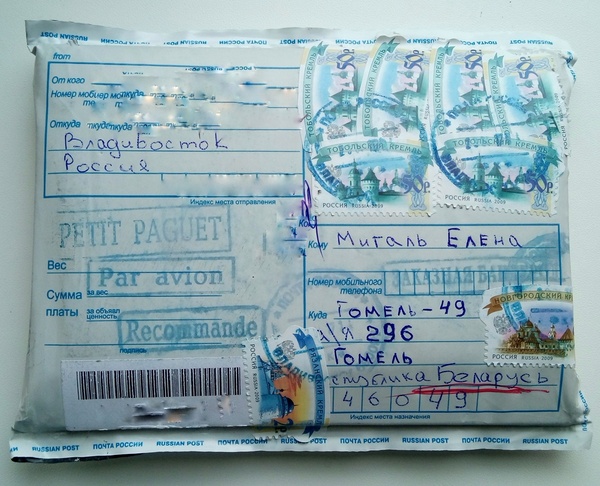 RUSSIAN POST ПОЧТА РОССИИ RUSSIAN POST ПОЧТА РОССИИ RUSSIAN POST
from
От кого
Номер мобильного
Откуда
Владивосток
Россия
Индекс места отправления
50р
50р
50р
50р
ТОБОЛЬСКИЙ КРЕМЛЬ
ТОБОЛЬСКИЙ КРЕМЛЬ
50р
50р
РОССИЯ RUSSIA 2009
РОССИЯ RUSSIA 2009
PETIT PAGUET
Par avion
Recommande
Вес
за вес
Сумма
платы
за объявл
ценность
подпись
Кому
Миталь Елена
Номер мобильного
телефона
ЗАКАЗНАЯ
Куда
Гомель-49
А/Я 296
Гомель
еспублика Беларусь
46049
Индекс места назначения
НОВГОРОДСКИЙ
РОССИЯ RUSSIA 2009
РОССИЯ RUSSIA 2009
РЯЗАНСКИЙ КРЕМЛЬ
RUSSIAN POST ПОЧТА РОССИИ RUSSIAN POST ПОЧТА РОССИИ RUSSIAN POST ПОЧТА РОССИИ RUSSIAN POST